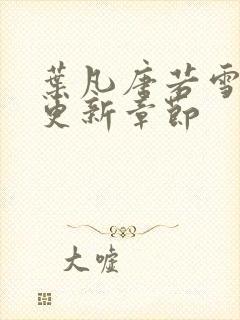 葉凡唐若雪
更新章節
大噓